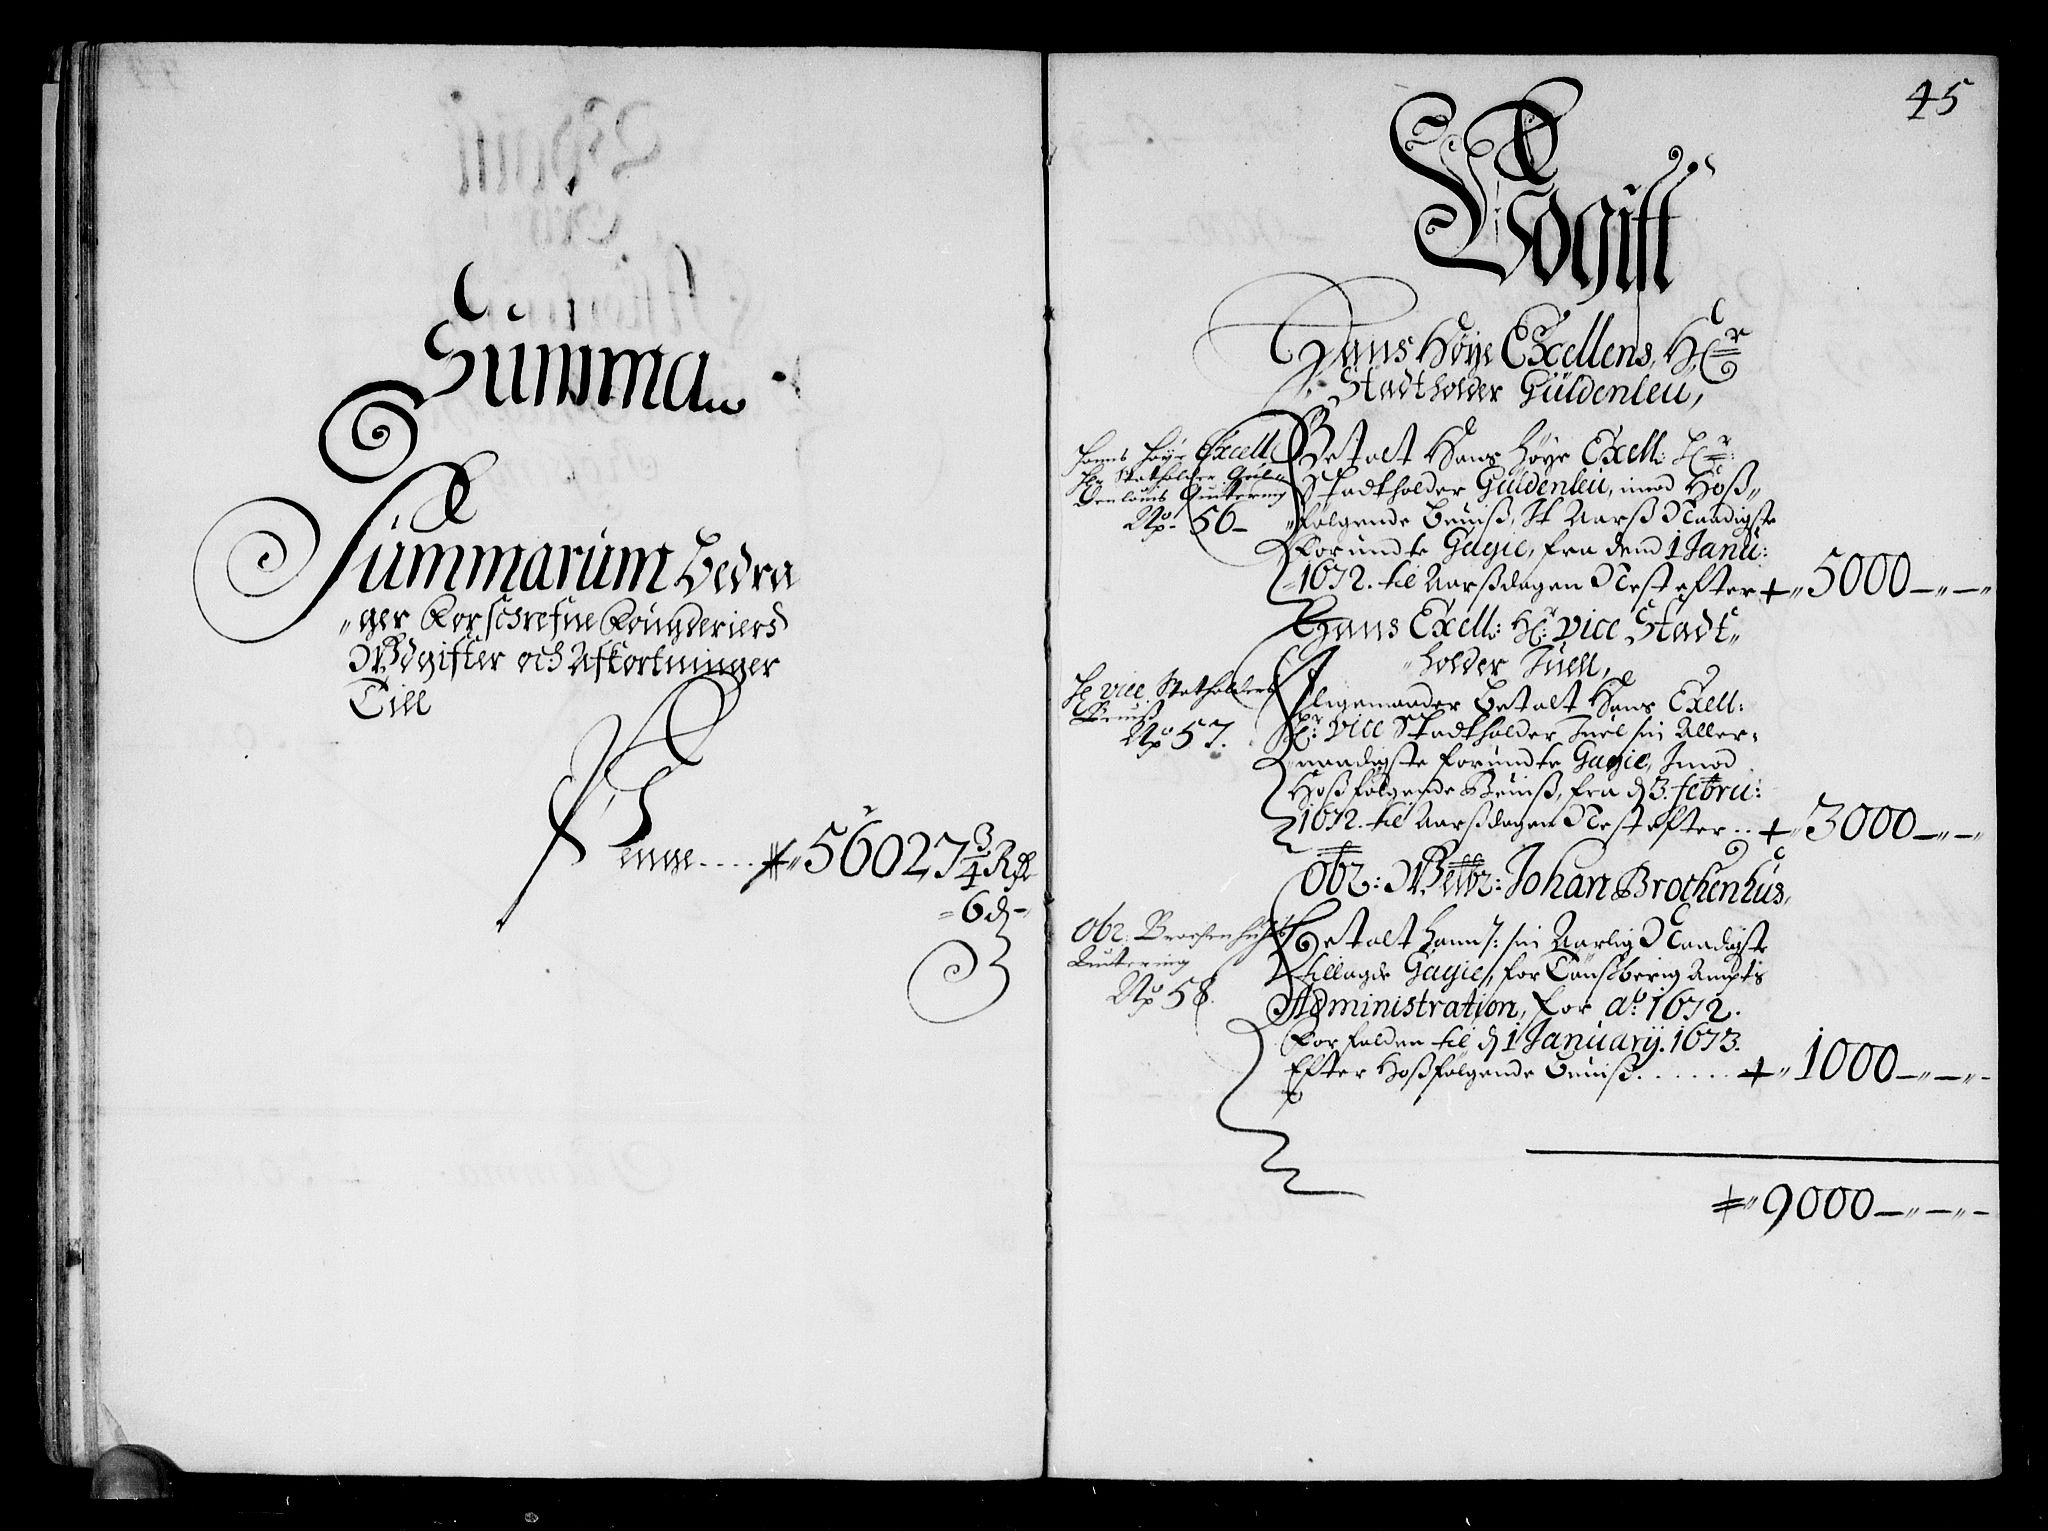 Summa
Summarum Bedra
ger Forschrefne Fougderiers
Udgifter och Afkortninger
Till
Penge.... 56027 3/4 Rdr
6 ß
45
Udgift
Hans Høye Excellens, Hr
Stadtholder Güldenleu,
Hanns Høye Excell:
Hr Statholder Gul-
denleuis Quittering
No 56
Betalt Hans Høye Excell: Hr:
Stadtholder Güldenleu, imod Hoß-
følgende Beuiß, It Aarß Naadigste
forundte Gagie, fra dend 1 Janu:
1672. til Aarßdagen Nest efter 5000
Hans Excell: Hr: Vice Stadt-
holder Juell,
Hr Vice Statholders
Beuiß
No 57.
Ligemaader Betalt Hans Excell:
Hr: Vice Stadtholder Juel sin Aller-
naadigste forundte Gagie, Imod
Hoßfølgende Beuiß, fra d 3. febru:
1672. til Aarßdagen Nest efter .. 3000
Obr: Welbr: Johan Brochenhus,
Obr: Brochenhuses
Quittering
No 58.
Betalt hannß: sin Aarlig Naadigste
tillagde Gagie, for Tønsberig Ampts
Administration, for ao 1672.
Forfalden til d 1 January. 1673.
Efter Hoßfølgende Beuiß...... 1000
9000